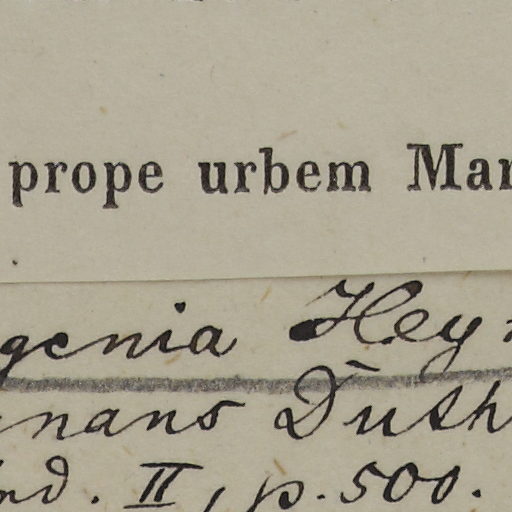 prope urbem Mar
genia Hey
nans Duth
nd. II, p. 500.